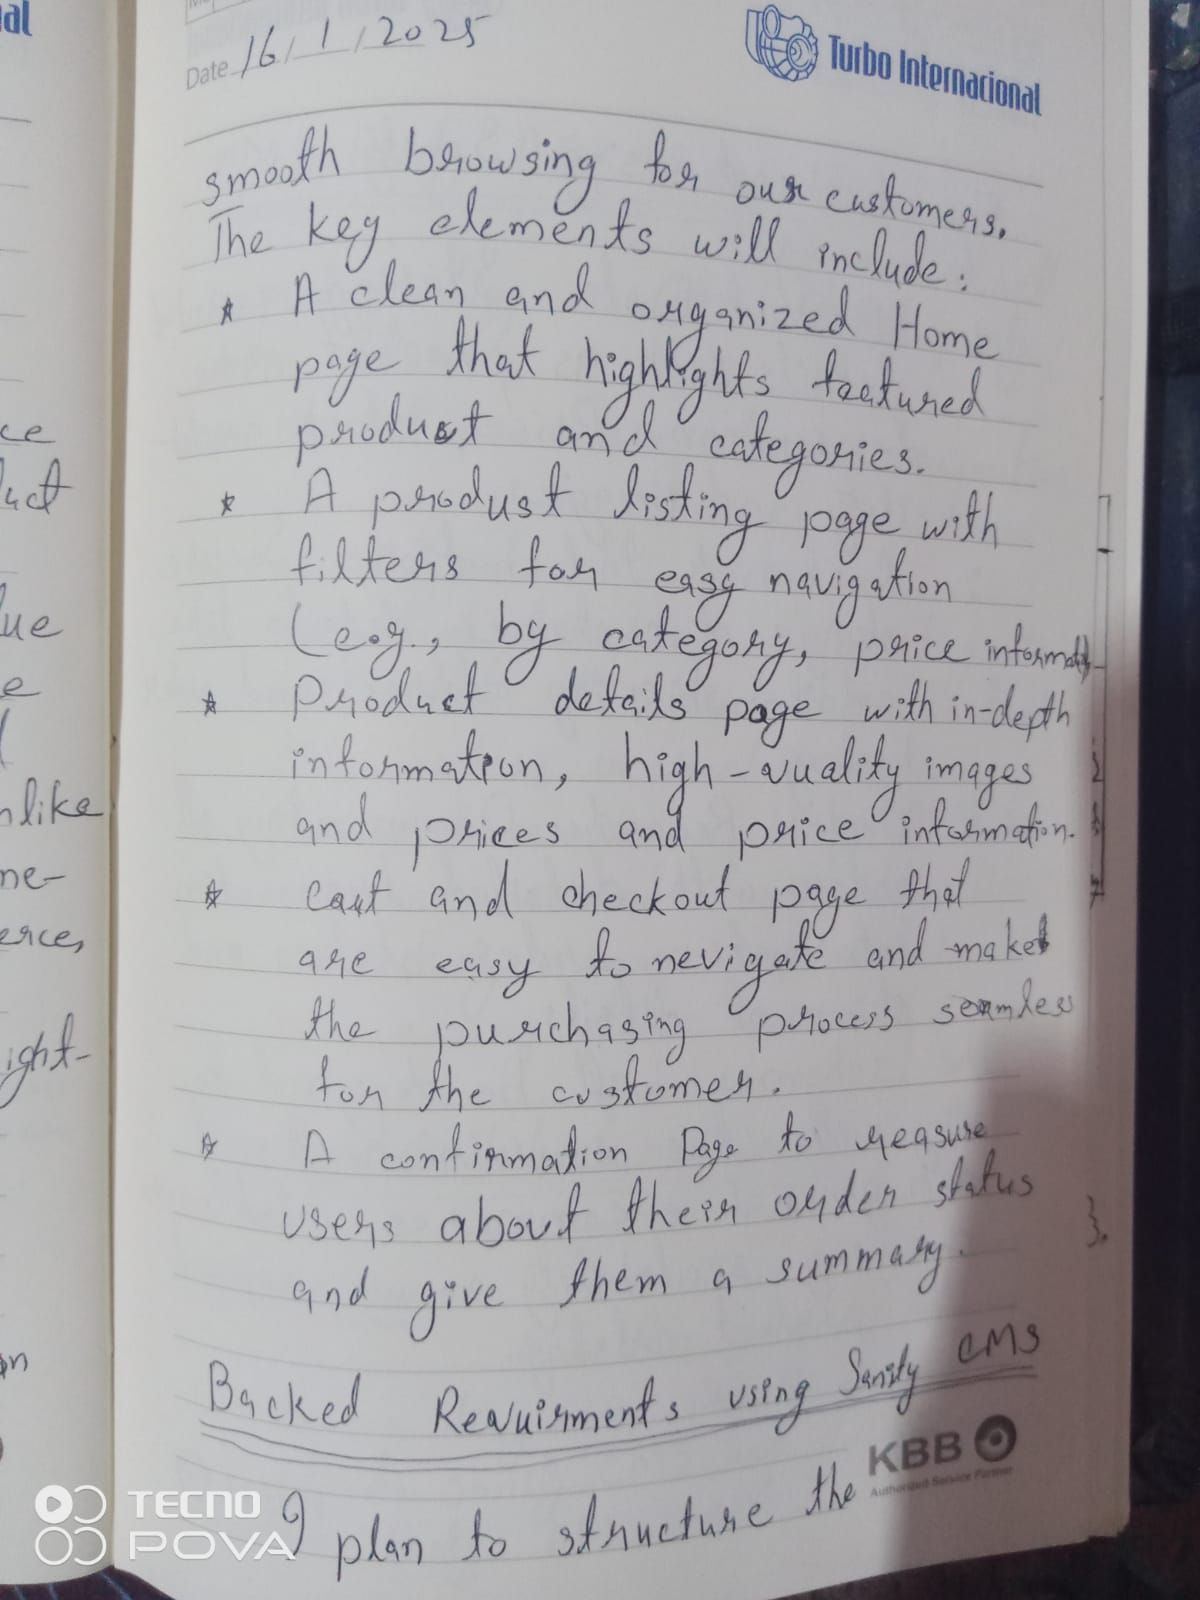 al
Date 16/1/2025
Turbo Internacional
smooth browsing for our customers.
The key elements will include:
* A clean and organized Home
page that highlights featured
product and categories.
* A produst listing page with
filters for easy navigation
(e.g., by category, price
* Product details page with in-depth
information, high-quality images
and prices and price information.
* Cart and checkout page that
are easy to nevigate and make
the purchasing process
for the customer.
* A confirmation Page to reasure
users about their order status
and give them a summary.
Backed Requirments using Sanity CMS
I plan to structure the
KBB
Authorized Service Partner
ce
uct
ue
e
nlike
me-
erce,
ight-
on
3.
TECNO
POVA